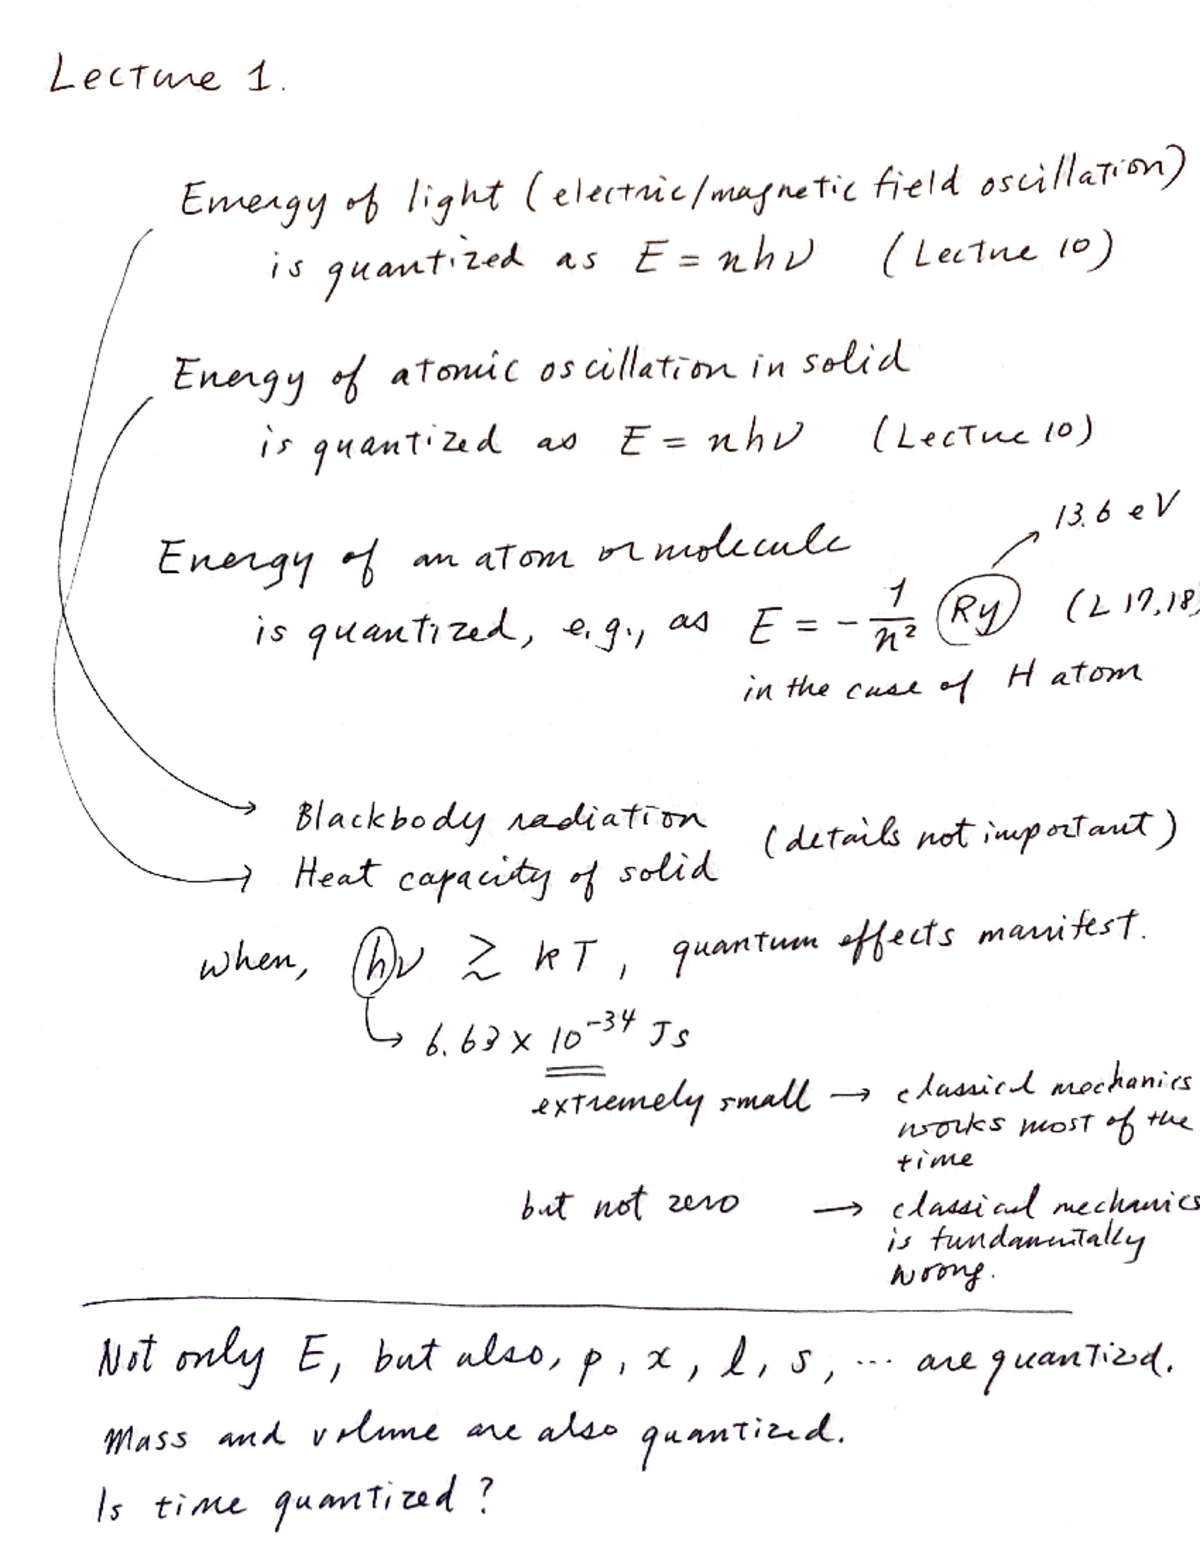 Lecture 1.
Energy of light (electric/magnetic field oscillation)
is quantized as E = nhν (Lectue 10)
Energy of atomic oscillation in solid
is quantized as E = nhν (Lectue 10)
13.6 eV
Energy of an atom or molecule
is quantized, e.g., as E = - 1/n² Ry (L 17,18)
in the case of H atom
Blackbody radiation
(details not important)
Heat capacity of solid
when, hν ≳ kT, quantum effects manifest.
6.63 x 10⁻³⁴ Js
extremely small → classical mechanics
works most of the
time
but not zero → classical mechanics
is fundamentally
wrong.
Not only E, but also, p, x, l, s, ... are quantized.
Mass and volume are also quantized.
Is time quantized?